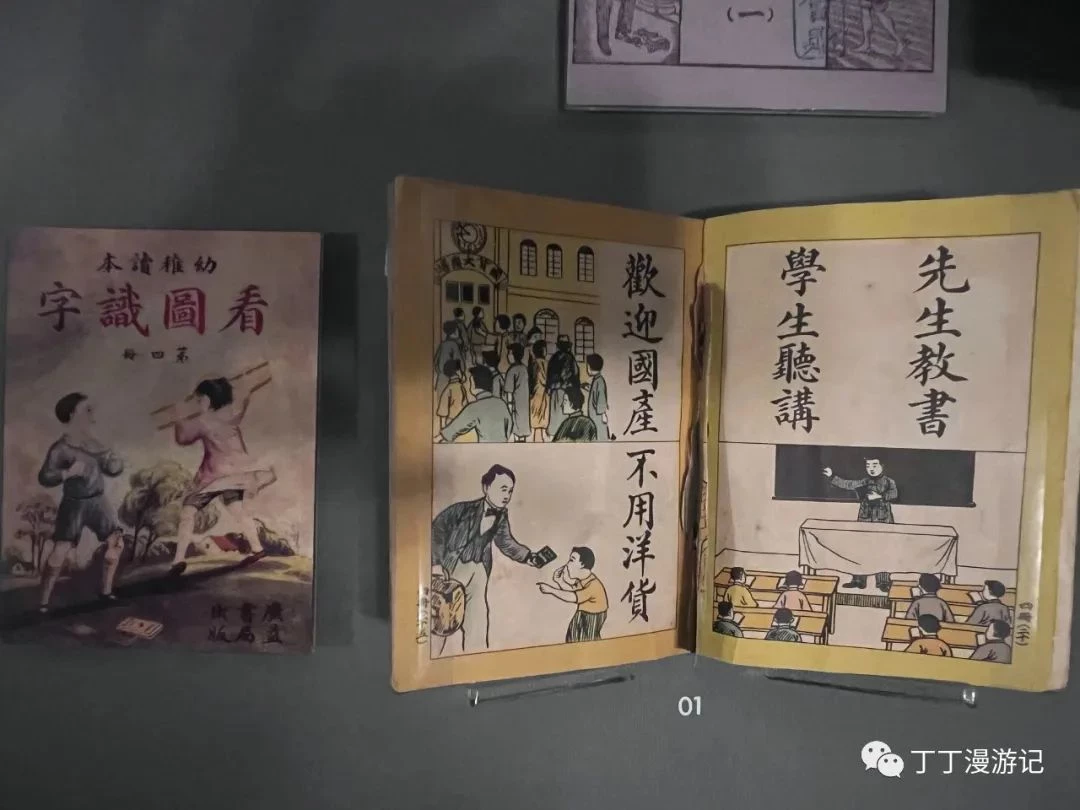 （一）
幼稚讀本
看圖識字
第四册
廣益
書局
版
先生教書
學生聽講
四冊（二十）
歡迎國產
不用洋貨
01
丁丁漫游记